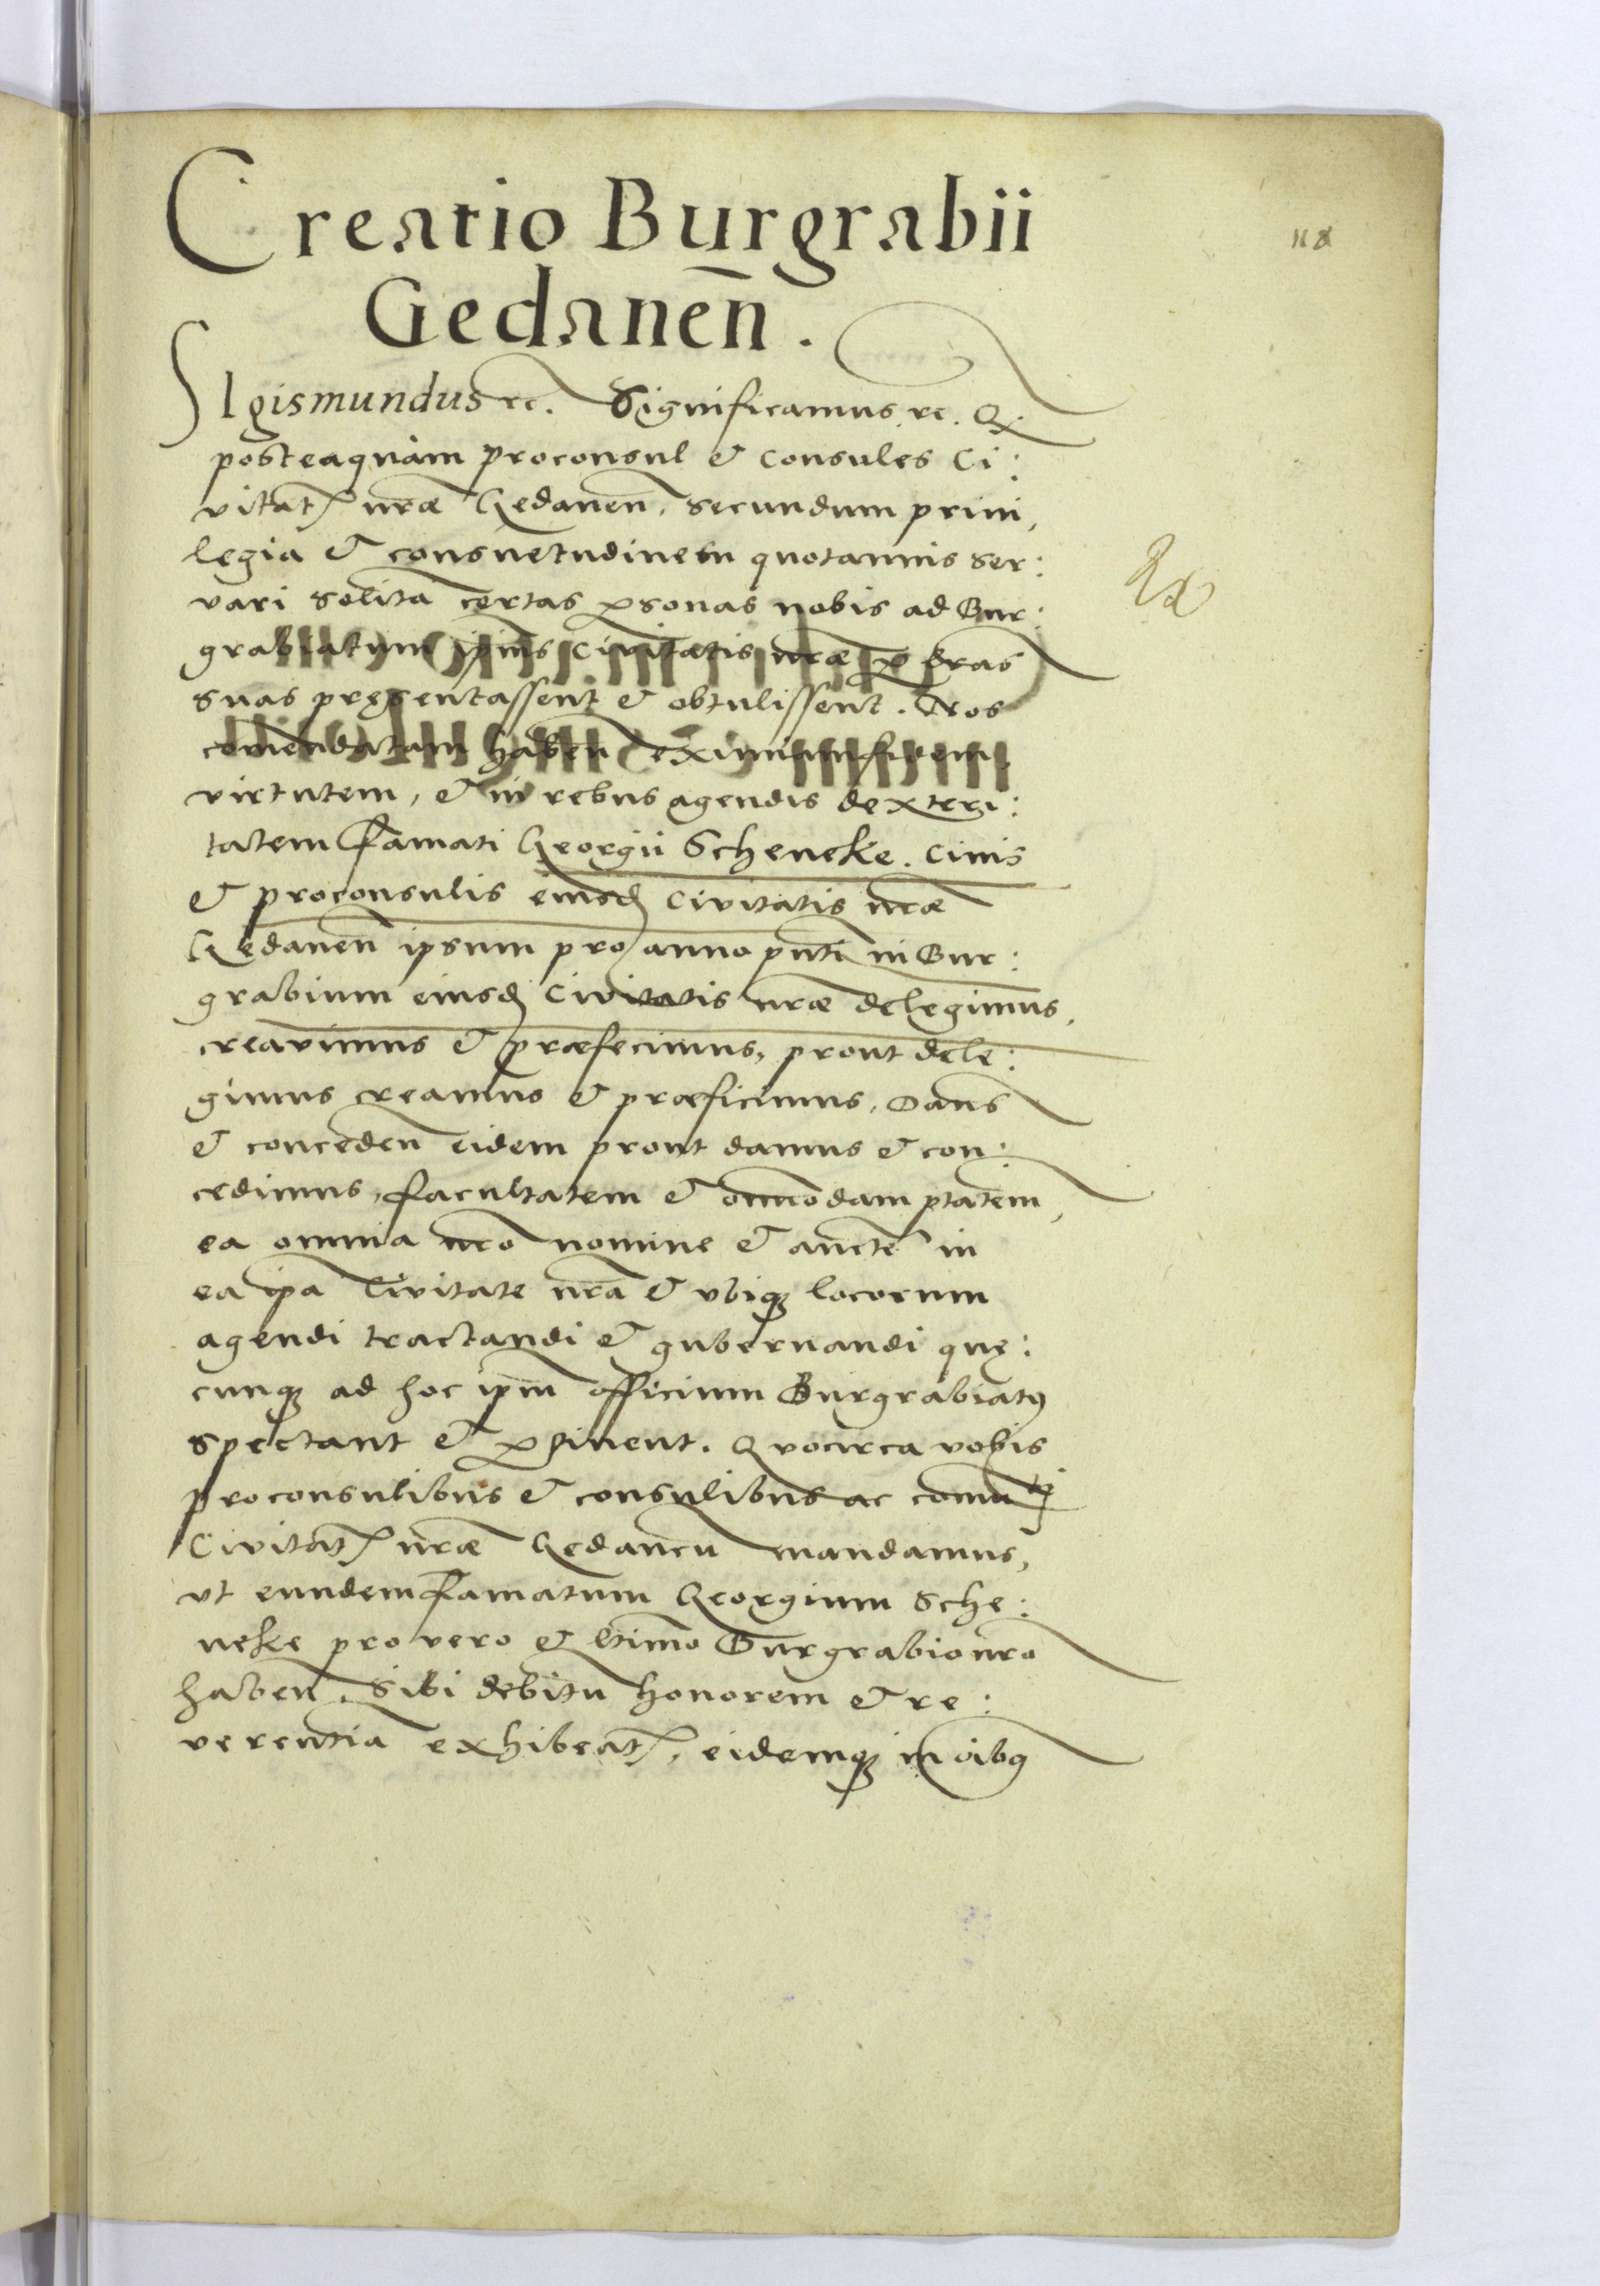 Creatio Burgrabii
Gedanen̄.
SIgismundus rc. Significamus. rc. Q
posteaquàm proconsul & Consules Ci:
vitat̄ nr̄æ Gedanen̄, secundum privi,
legia & consuetudinem quotannis ser:
vari solita certas ꝑsonas nobis ad Bur:
grabiatum ip̄ius Civitatis nr̄æ ꝑ lr̄as
suas pręsentassent & obtulissent. Nos
com̄endatam haben̄ eximiam fidem
virtutem, & in rebus agendis dexteri:
tatem famati Georgii Scheneke. Civis
& proconsulis eiusd̄ Civitatis nr̄æ
Gedanen̄ ipsum pro anno pn̄ti in Bur:
grabium eiusd̄ Civitatis nr̄æ delegimus,
creavimus & præfecimus, prout dele:
gimus creamus & præficimus, Dan̄s
& conceden̄ eidem prout damus & con:
cedimus, facultatem & om̄nodam ptātem,
ea omnia nr̄o nomine & aucte in
ea ip̄a Civitate nr̄a & vbiq̨ locorum
agendi tractandi & gubernandi quę:
cunq̨ ad hoc ip̄m officium Burgrabiatꝰ
spectant & ꝑtinent. Quocirca vobis
proconsulibus & consulibus ac com̄uti
Civitat̄ nr̄æ Gedanen̄ mandamus,
vt eundem famatum Georgium Sche:
neke pro vero & ltīmo Burgrabio nr̄o
haben̄, Sibi debitū honorem & re:
verentiā exhibeat̄, eidemq̨ in oībꝰ